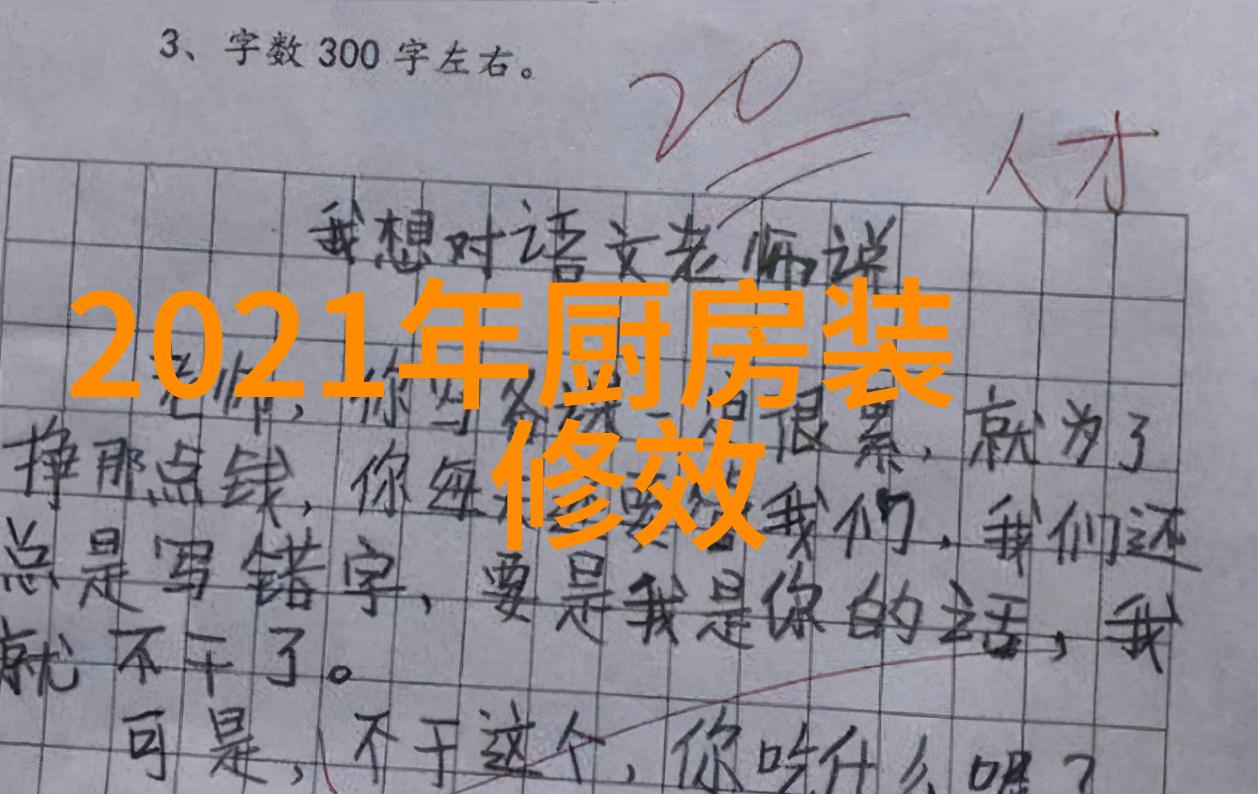 3、字数 300 字左右。
20
人才
我想对语文老师说
2021年厨房装
修效
老师，你写备课一定很累，就为了
挣那点钱，你每天还要管我们，我们还
总是写错字，要是我是你的话，我
就不干了。
可是，不干这个，你吃什么呢？